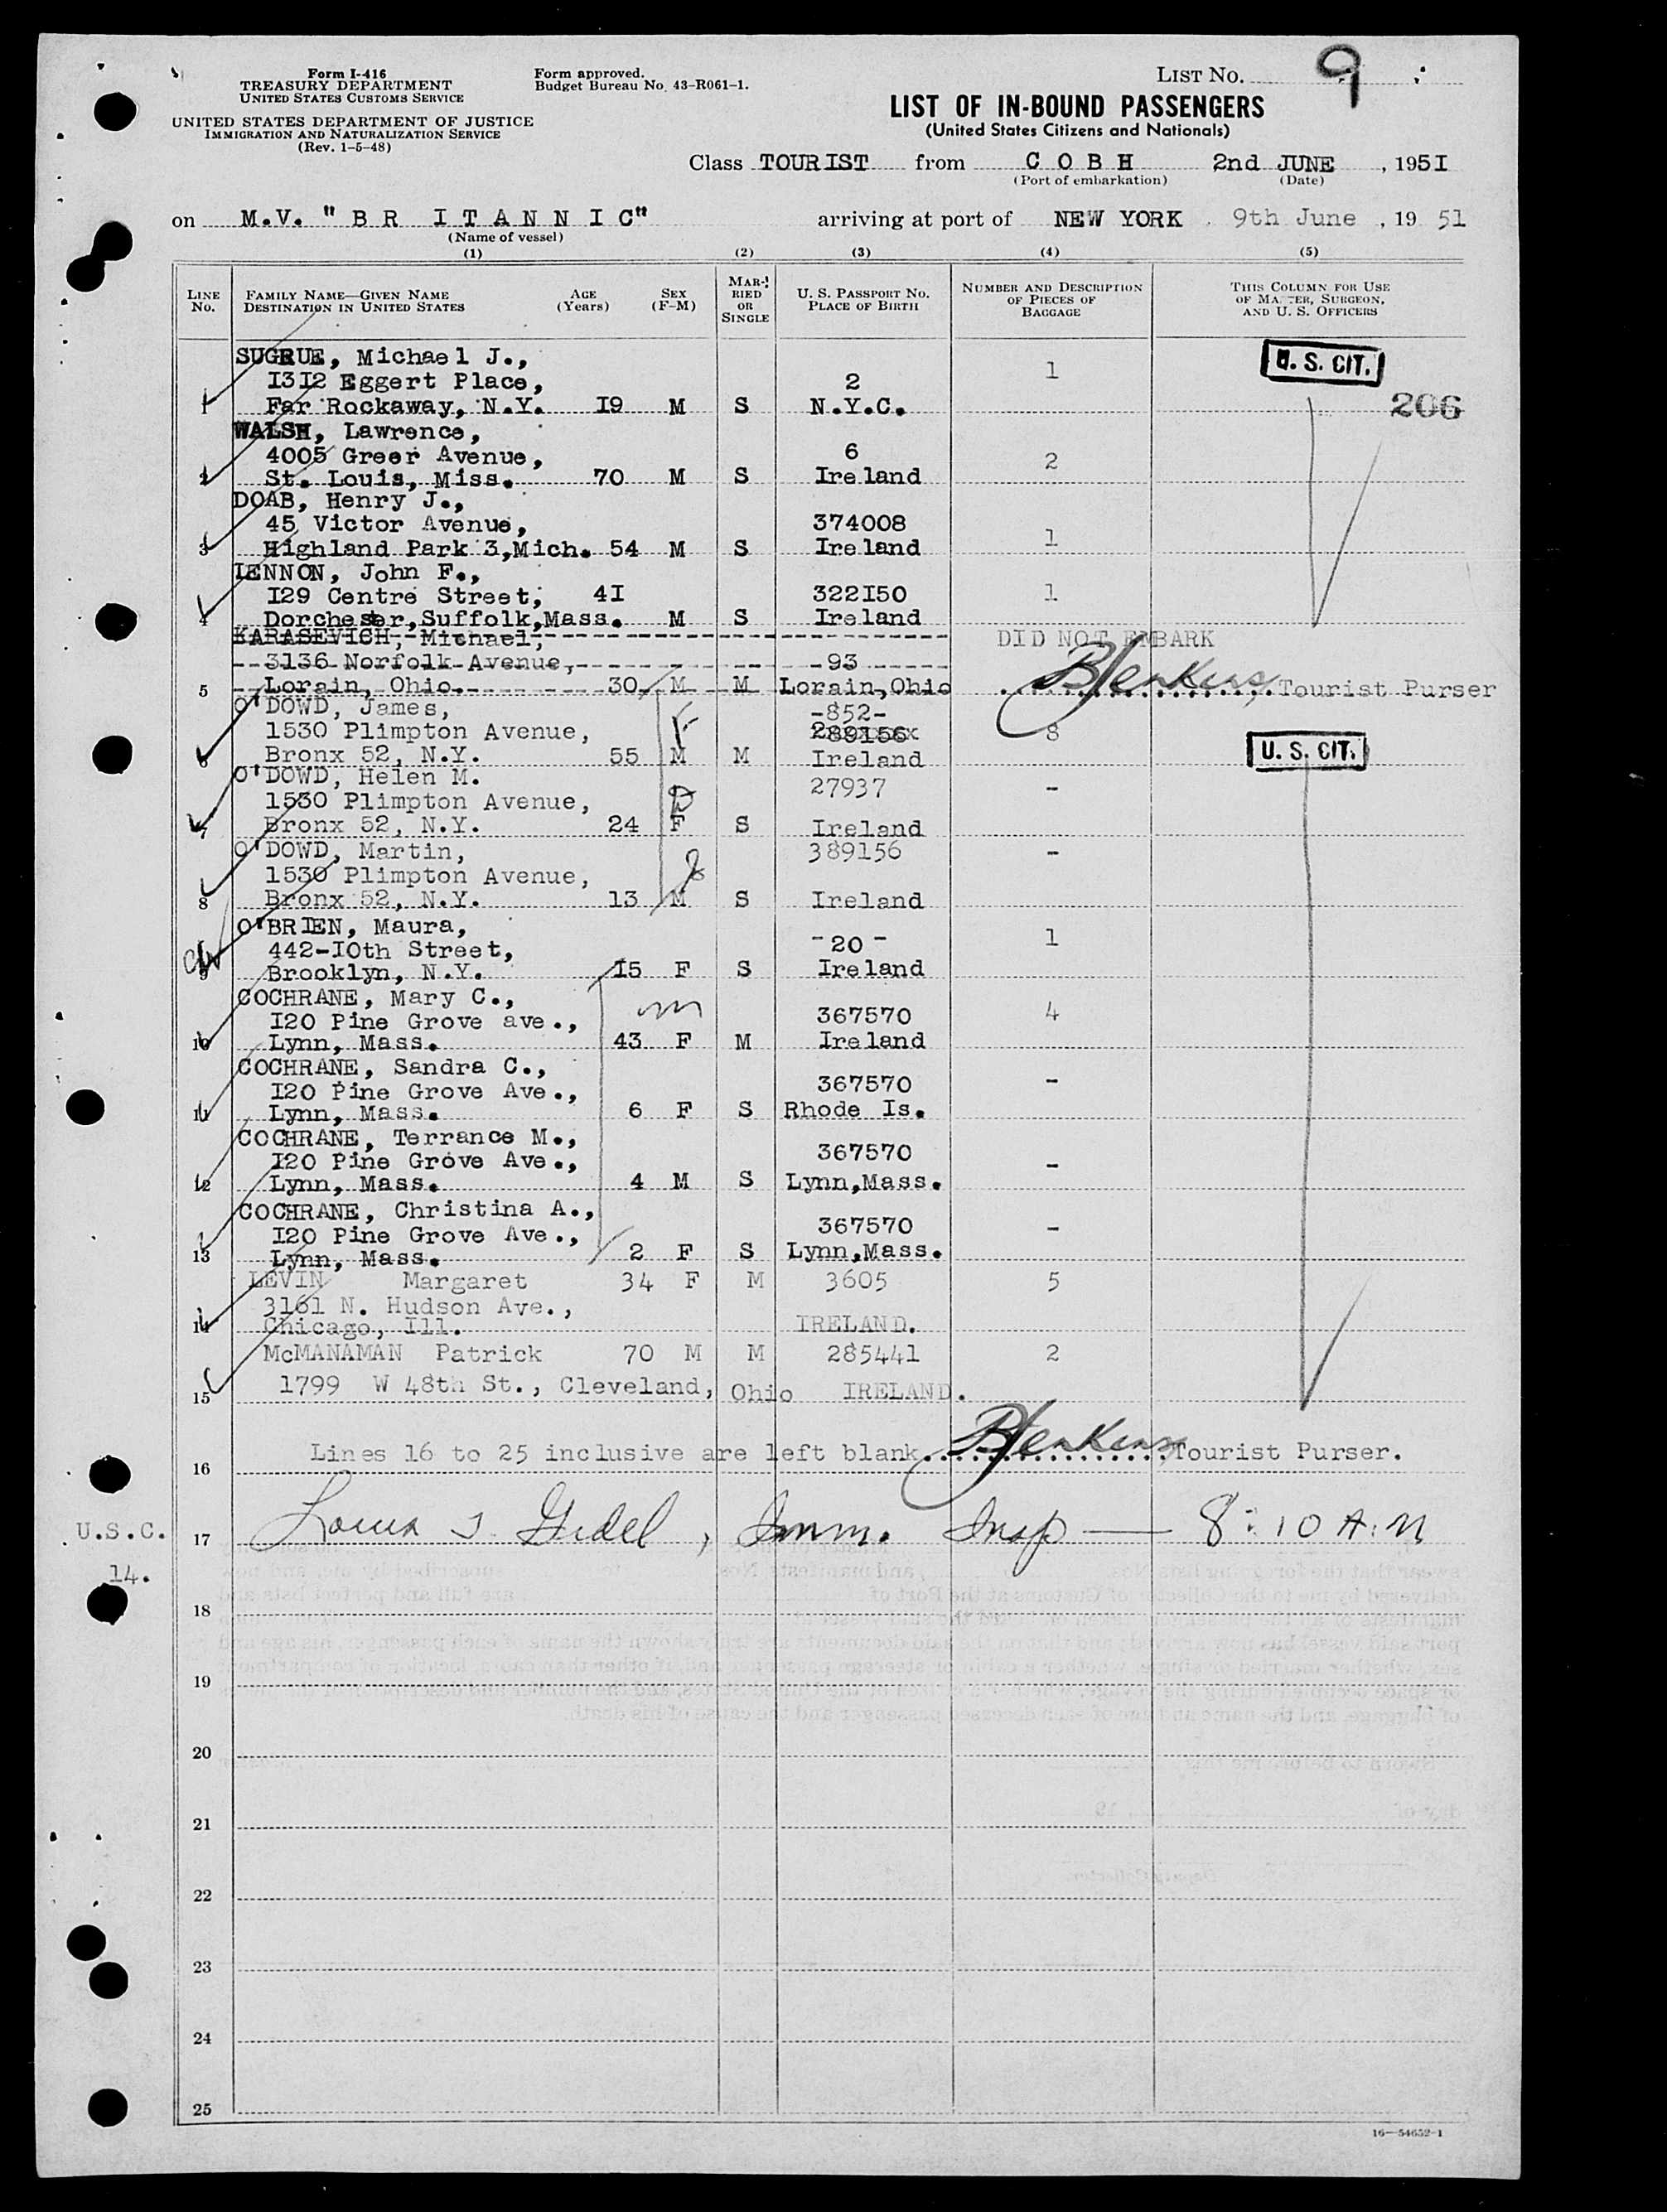 Form I-416
TREASURY DEPARTMENT
UNITED STATES CUSTOMS SERVICE
UNITED STATES DEPARTMENT OF JUSTICE
IMMIGRATION AND NATURALIZATION SERVICE
(Rev. 1-5-48)
Form approved.
Budget Bureau No. 43-R061-1.
LIST NO. 9
LIST OF IN-BOUND PASSENGERS
(United States Citizens and Nationals)
Class TOURIST from C O B H 2nd JUNE , 195I
(Port of embarkation) (Date)
on M.V. "B R I T A N N I C" arriving at port of NEW YORK . 9th June , 19 51
(Name of vessel)
(1) (2) (3) (4) (5)
LINE NO. FAMILY NAME—GIVEN NAME DESTINATION IN UNITED STATES AGE (Years) SEX (F-M) MARRIED OR SINGLE U. S. PASSPORT NO. PLACE OF BIRTH NUMBER AND DESCRIPTION OF PIECES OF BAGGAGE THIS COLUMN FOR USE OF MASTER, SURGEON, AND U. S. OFFICERS
SUGRUE, Michael J., U. S. CIT.
I3I2 Eggert Place, 2 1
1 Far Rockaway, N.Y. I9 M S N.Y.C. 206
WALSH, Lawrence,
4005 Greer Avenue, 6 2
2 St. Louis, Miss. 70 M S Ireland
DOAB, Henry J.,
45 Victor Avenue, 374008
3 Highland Park 3,Mich. 54 M S Ireland 1
LENNON, John F.,
I29 Centre Street, 4I 322I50 1
4 Dorchester,Suffolk,Mass. M S Ireland
KARASEVICH, Michael, DID NOT EMBARK
3136 Norfolk Avenue, 93
5 Lorain, Ohio. 30 M M Lorain,Ohio BJenkins Tourist Purser
O'DOWD, James, -852-
1530 Plimpton Avenue, F 289156 8
6 Bronx 52, N.Y. 55 M M Ireland U. S. CIT.
O'DOWD, Helen M. 27937
1530 Plimpton Avenue, D -
7 Bronx 52, N.Y. 24 F S Ireland
O'DOWD, Martin, 389156 -
1530 Plimpton Avenue,
8 Bronx 52, N.Y. 13 M S Ireland
O'BRIEN, Maura,
442-IOth Street, -20- 1
9 Brooklyn, N.Y. I5 F S Ireland
COCHRANE, Mary C., m
I20 Pine Grove ave., 367570 4
10 Lynn, Mass. 43 F M Ireland
COCHRANE, Sandra C.,
I20 Pine Grove Ave., 367570 -
11 Lynn, Mass. 6 F S Rhode Is.
COCHRANE, Terrance M.,
I20 Pine Grove Ave., 367570 -
12 Lynn, Mass. 4 M S Lynn,Mass.
COCHRANE, Christina A.,
I20 Pine Grove Ave., 367570 -
13 Lynn, Mass. 2 F S Lynn,Mass.
LEVIN Margaret 34 F M 3605 5
3161 N. Hudson Ave.,
14 Chicago, Ill. IRELAND.
McMANAMAN Patrick 70 M M 285441 2
15 1799 W 48th St., Cleveland, Ohio IRELAND.
16 Lines 16 to 25 inclusive are left blank. BJenkins Tourist Purser.
U.S.C. 17 Imm. Insp — 8:10 A.M
14.
18
19
20
21
22
23
24
25
16—54652-1